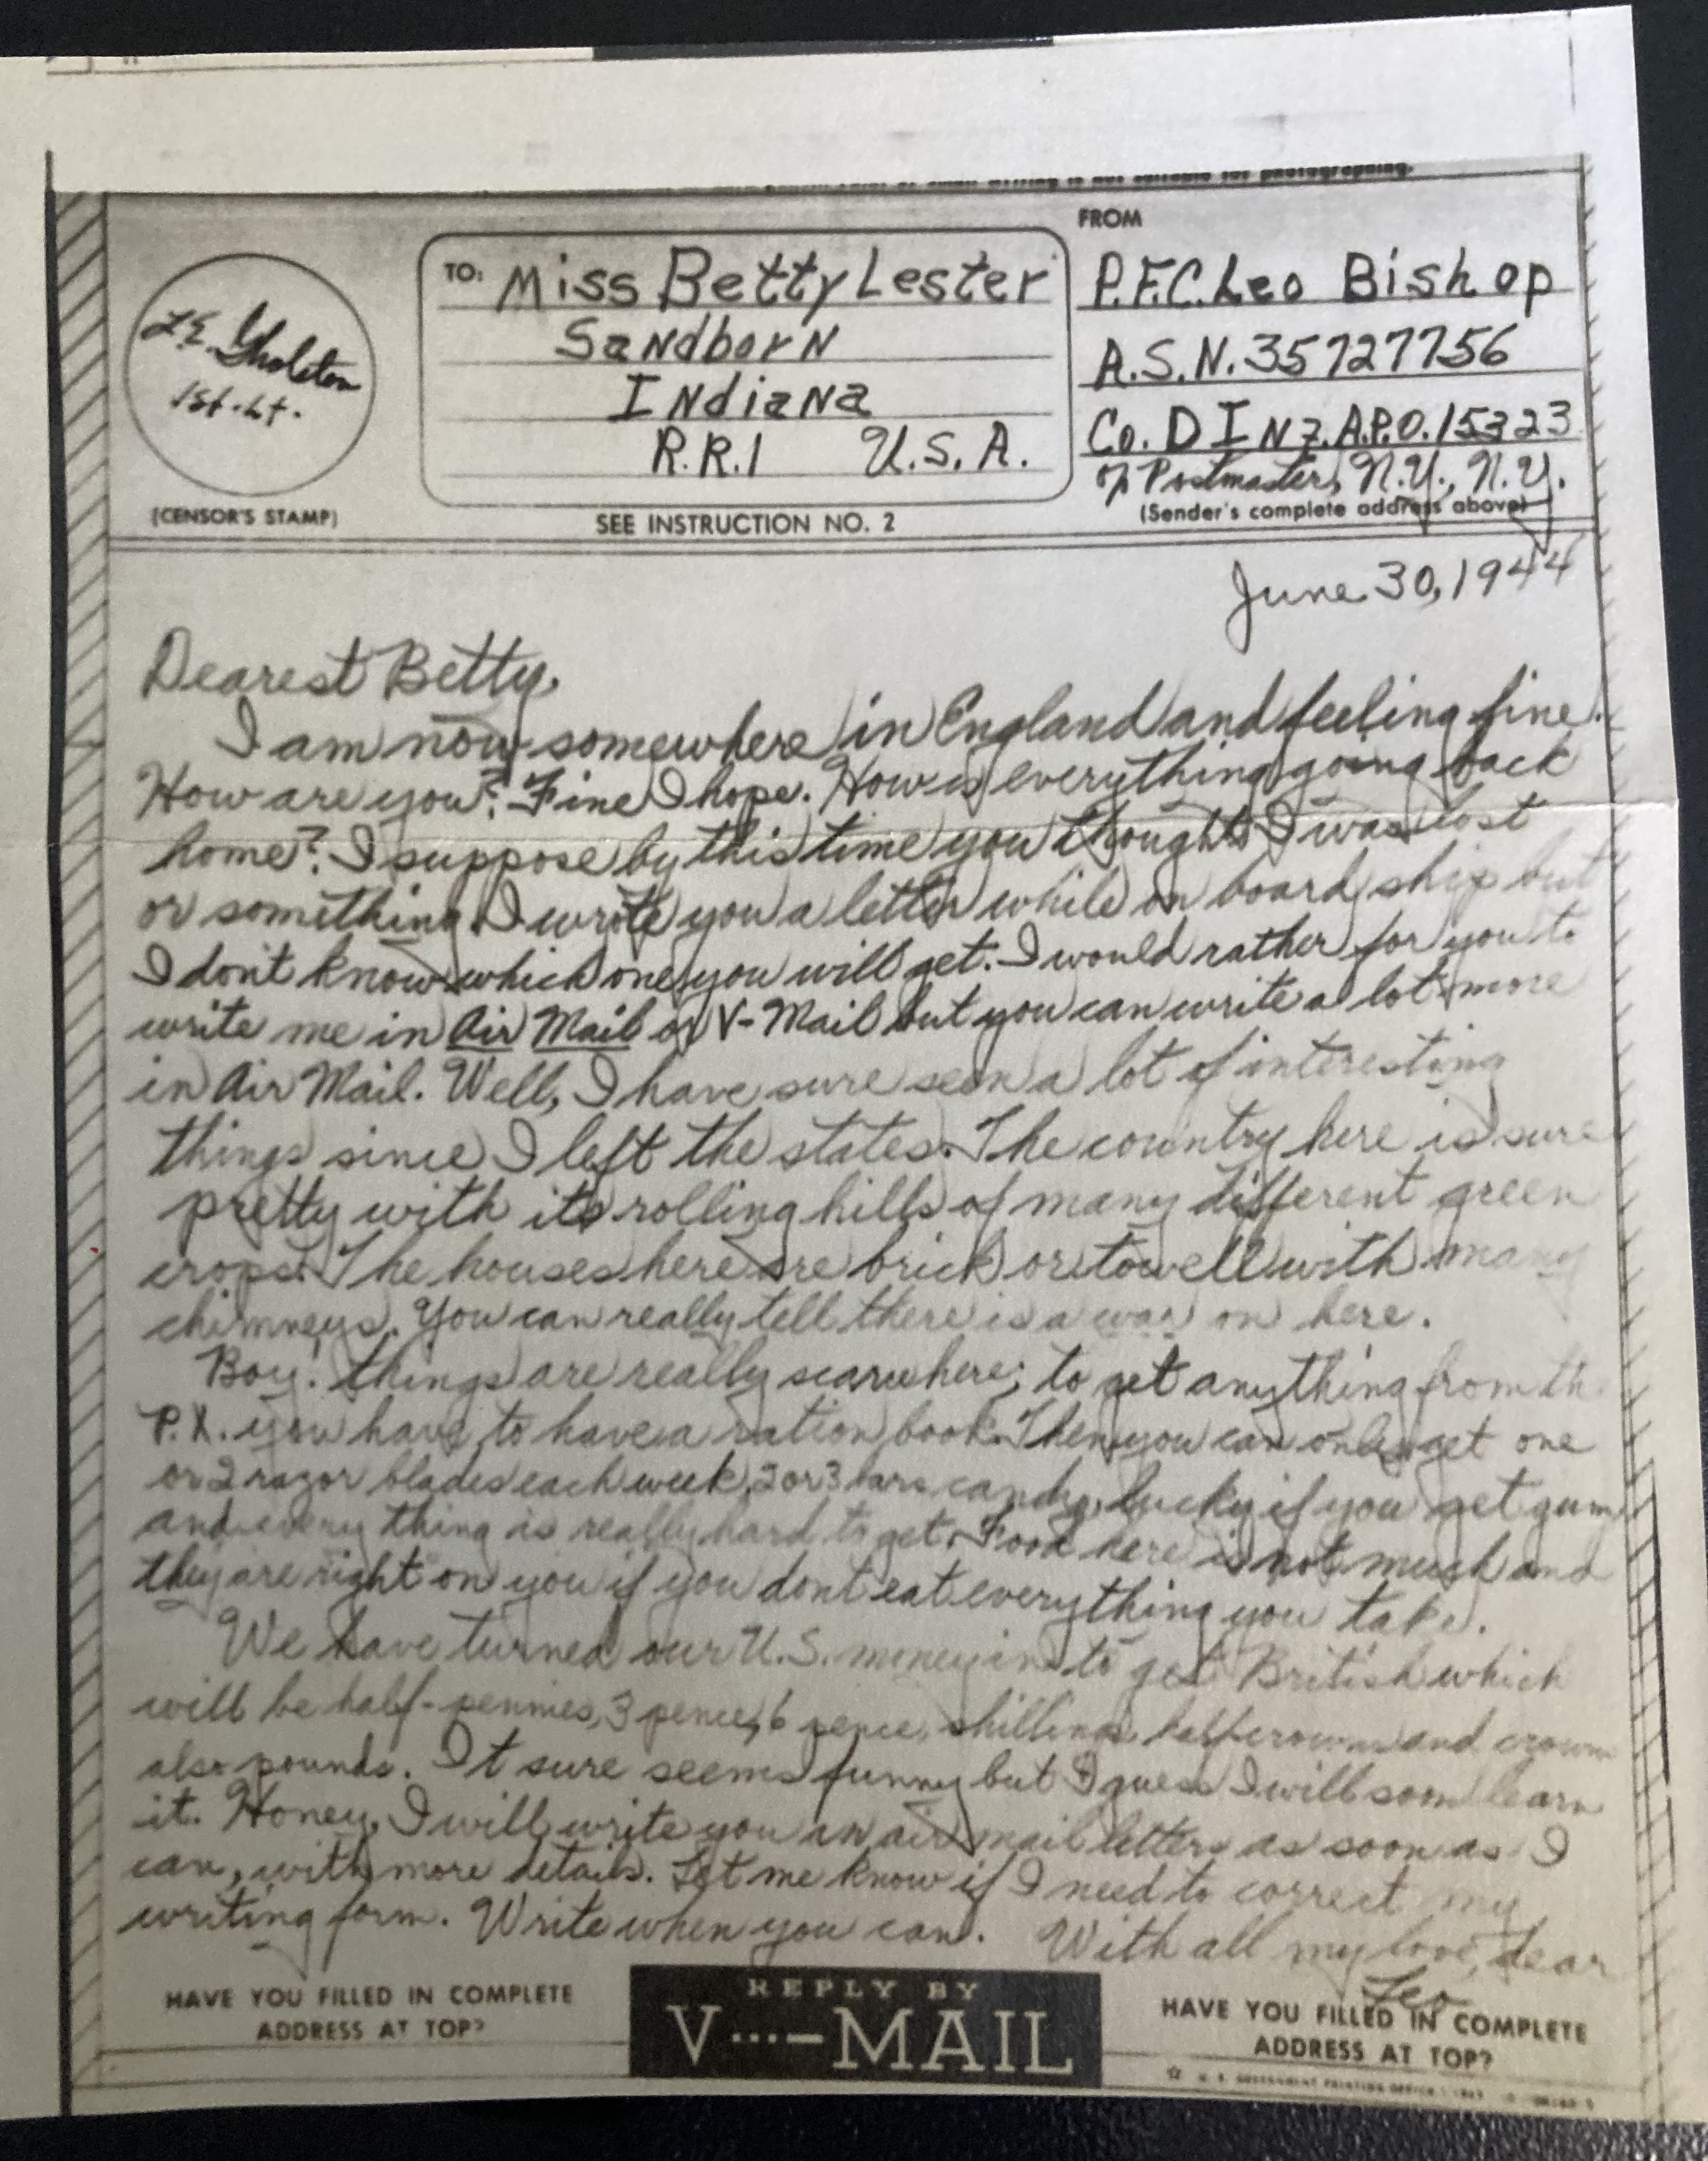 writing is not suitable for photographing.
L.E. Gholston
1st. Lt.
(CENSOR'S STAMP)
TO: Miss Betty Lester
Sandborn
Indiana
R.R.1 U.S.A.
SEE INSTRUCTION NO. 2
FROM
P.F.C. Leo Bishop
A.S.N. 35727756
Co. D INF. A.P.O. 15323
℅ Postmaster, N.Y., N.Y.
(Sender's complete address above)
June 30, 1944
Dearest Betty,
I am now somewhere in England and feeling fine.
How are you? Fine I hope. How is everything going back
home? I suppose by this time you thought I was lost
or something. I wrote you a letter while on board ship but
I dont know which one you will get. I would rather for you to
write me in Air Mail or V-Mail but you can write a lot more
in Air Mail. Well, I have sure seen a lot of interesting
things since I left the states. The country here is sure
pretty with its rolling hills of many different green
crops. The houses here are brick or with many
chimneys. You can really tell there is a war on here.
Boy! things are really scarce here; to get anything from the
P.X. you have to have a ration book. Then you can only get one
or 2 razor blades each week, 2 or 3 bars candy, lucky if you get gum
and every thing is really hard to get. Food here is not much and
they are right on you if you dont eat everything you take.
We have turned our U.S. money in to get British which
will be half-pennies, 3 pence, 6 pence, shillings, half crowns and crowns
also pounds. It sure seems funny but I guess I will soon learn
it. Honey, I will write you an air mail letter as soon as I
can, with more details. Let me know if I need to correct my
writing form. Write when you can. With all my love, dear
Leo
HAVE YOU FILLED IN COMPLETE
ADDRESS AT TOP?
REPLY BY
V···—MAIL
HAVE YOU FILLED IN COMPLETE
ADDRESS AT TOP?
☆ U. S. GOVERNMENT PRINTING OFFICE